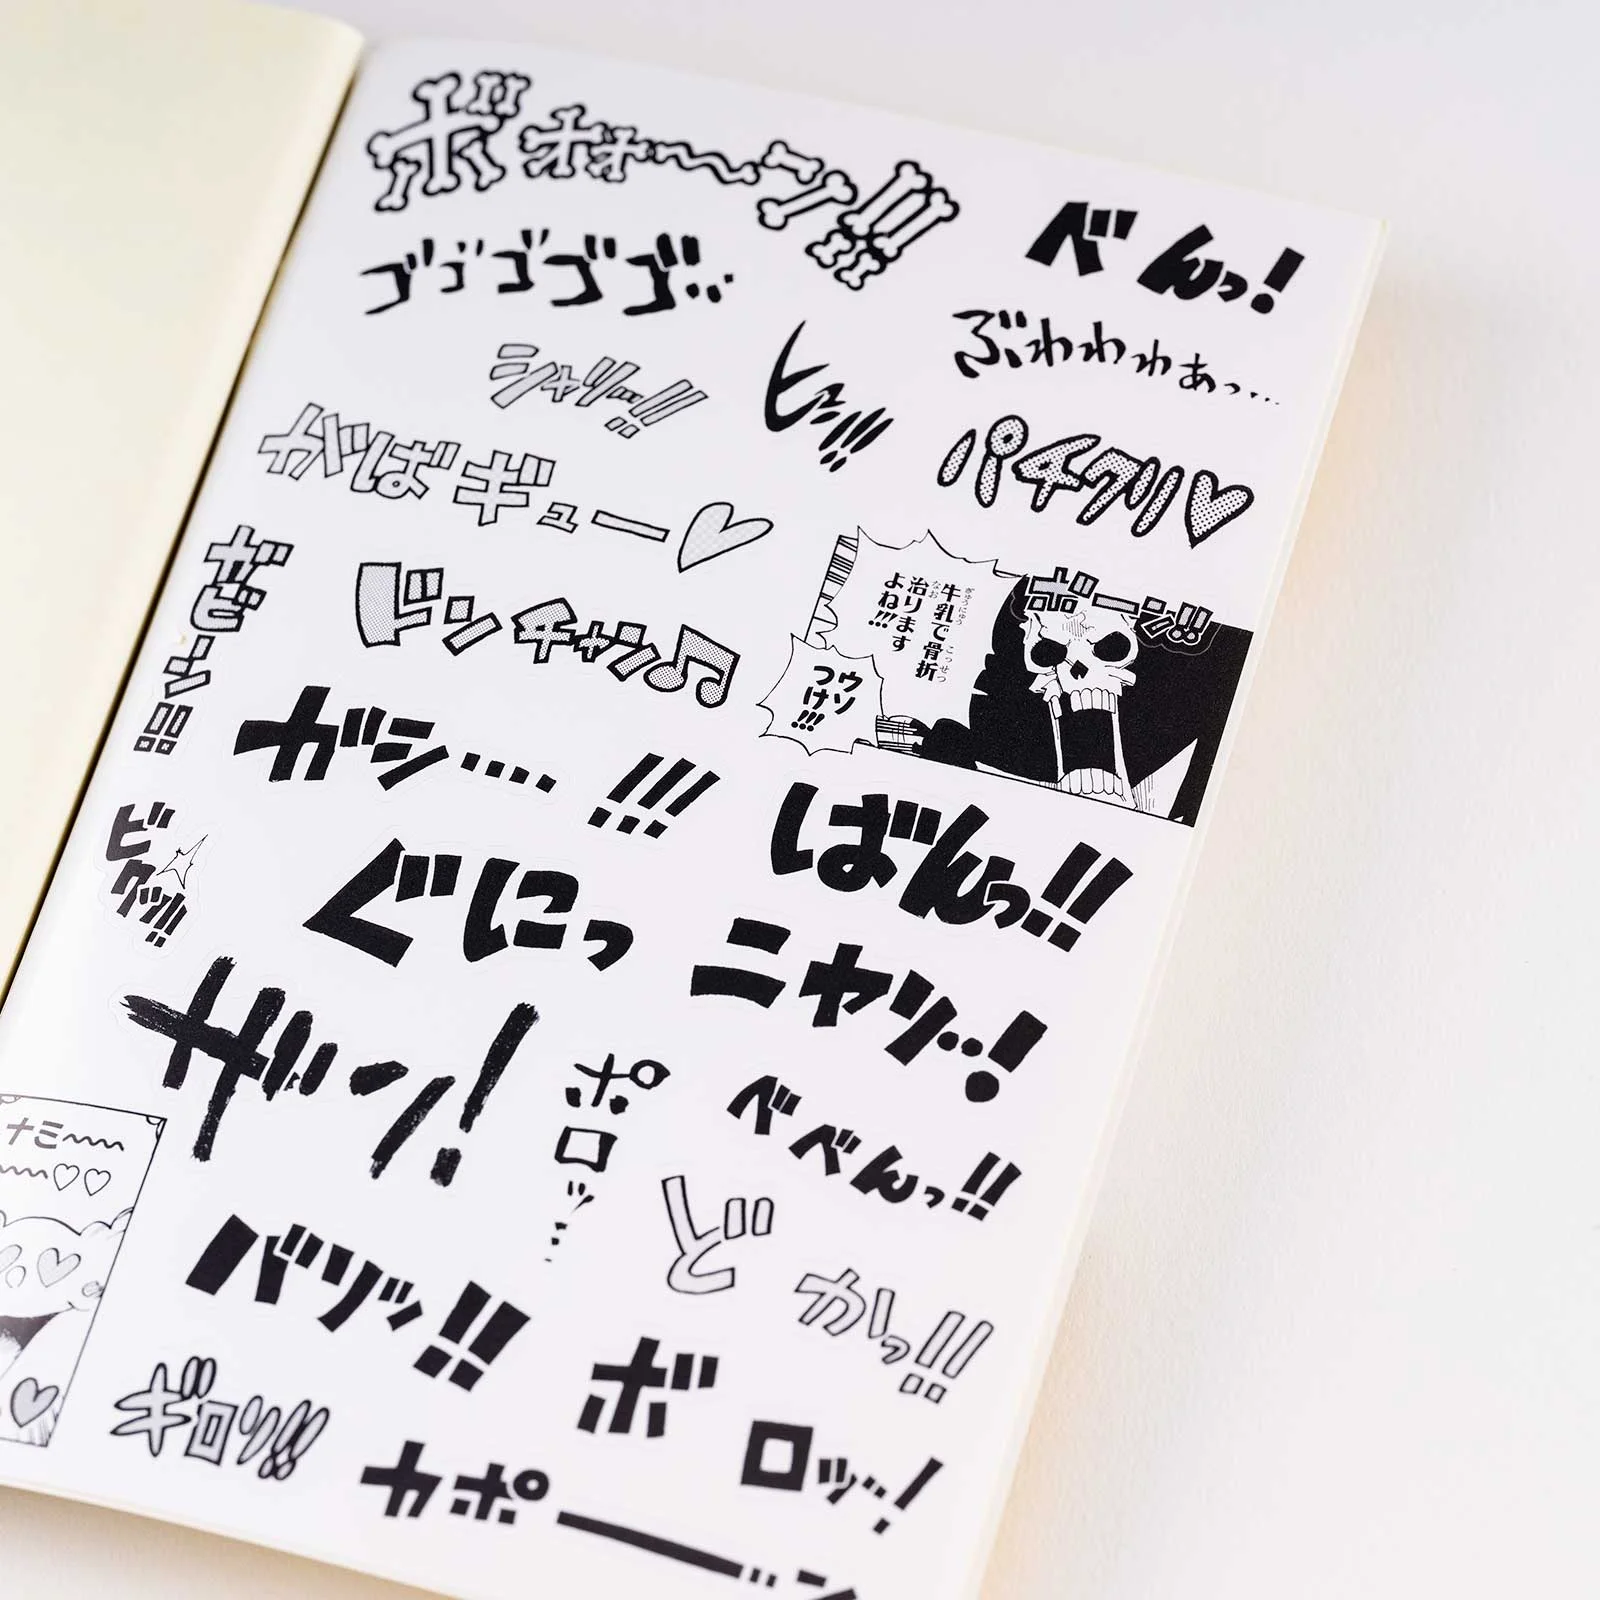 ボォォ〜ン!!
べんっ!
ゴゴゴゴゴ…
ぶわわわぁっ…
シャリッ…!!
ヒュン!!!
パチクリ♡
ずばギュー♡
牛乳で骨折
治ります
よね!!!
ぎゅうにゅう
こっせつ
なお
ウソ
つけ!!!
ガビーン!!
ブンチャン♪
ガシ…!!!
ばんっ!!
ビクッ!!
ぐにっ
ニヤリ…!
ザン!
ポロッ…
べべんっ!!
ナミ〜〜
〜〜♡♡
どかっ!!
バリッ!!
ギロリ!!
ボロッ…!
カポーン